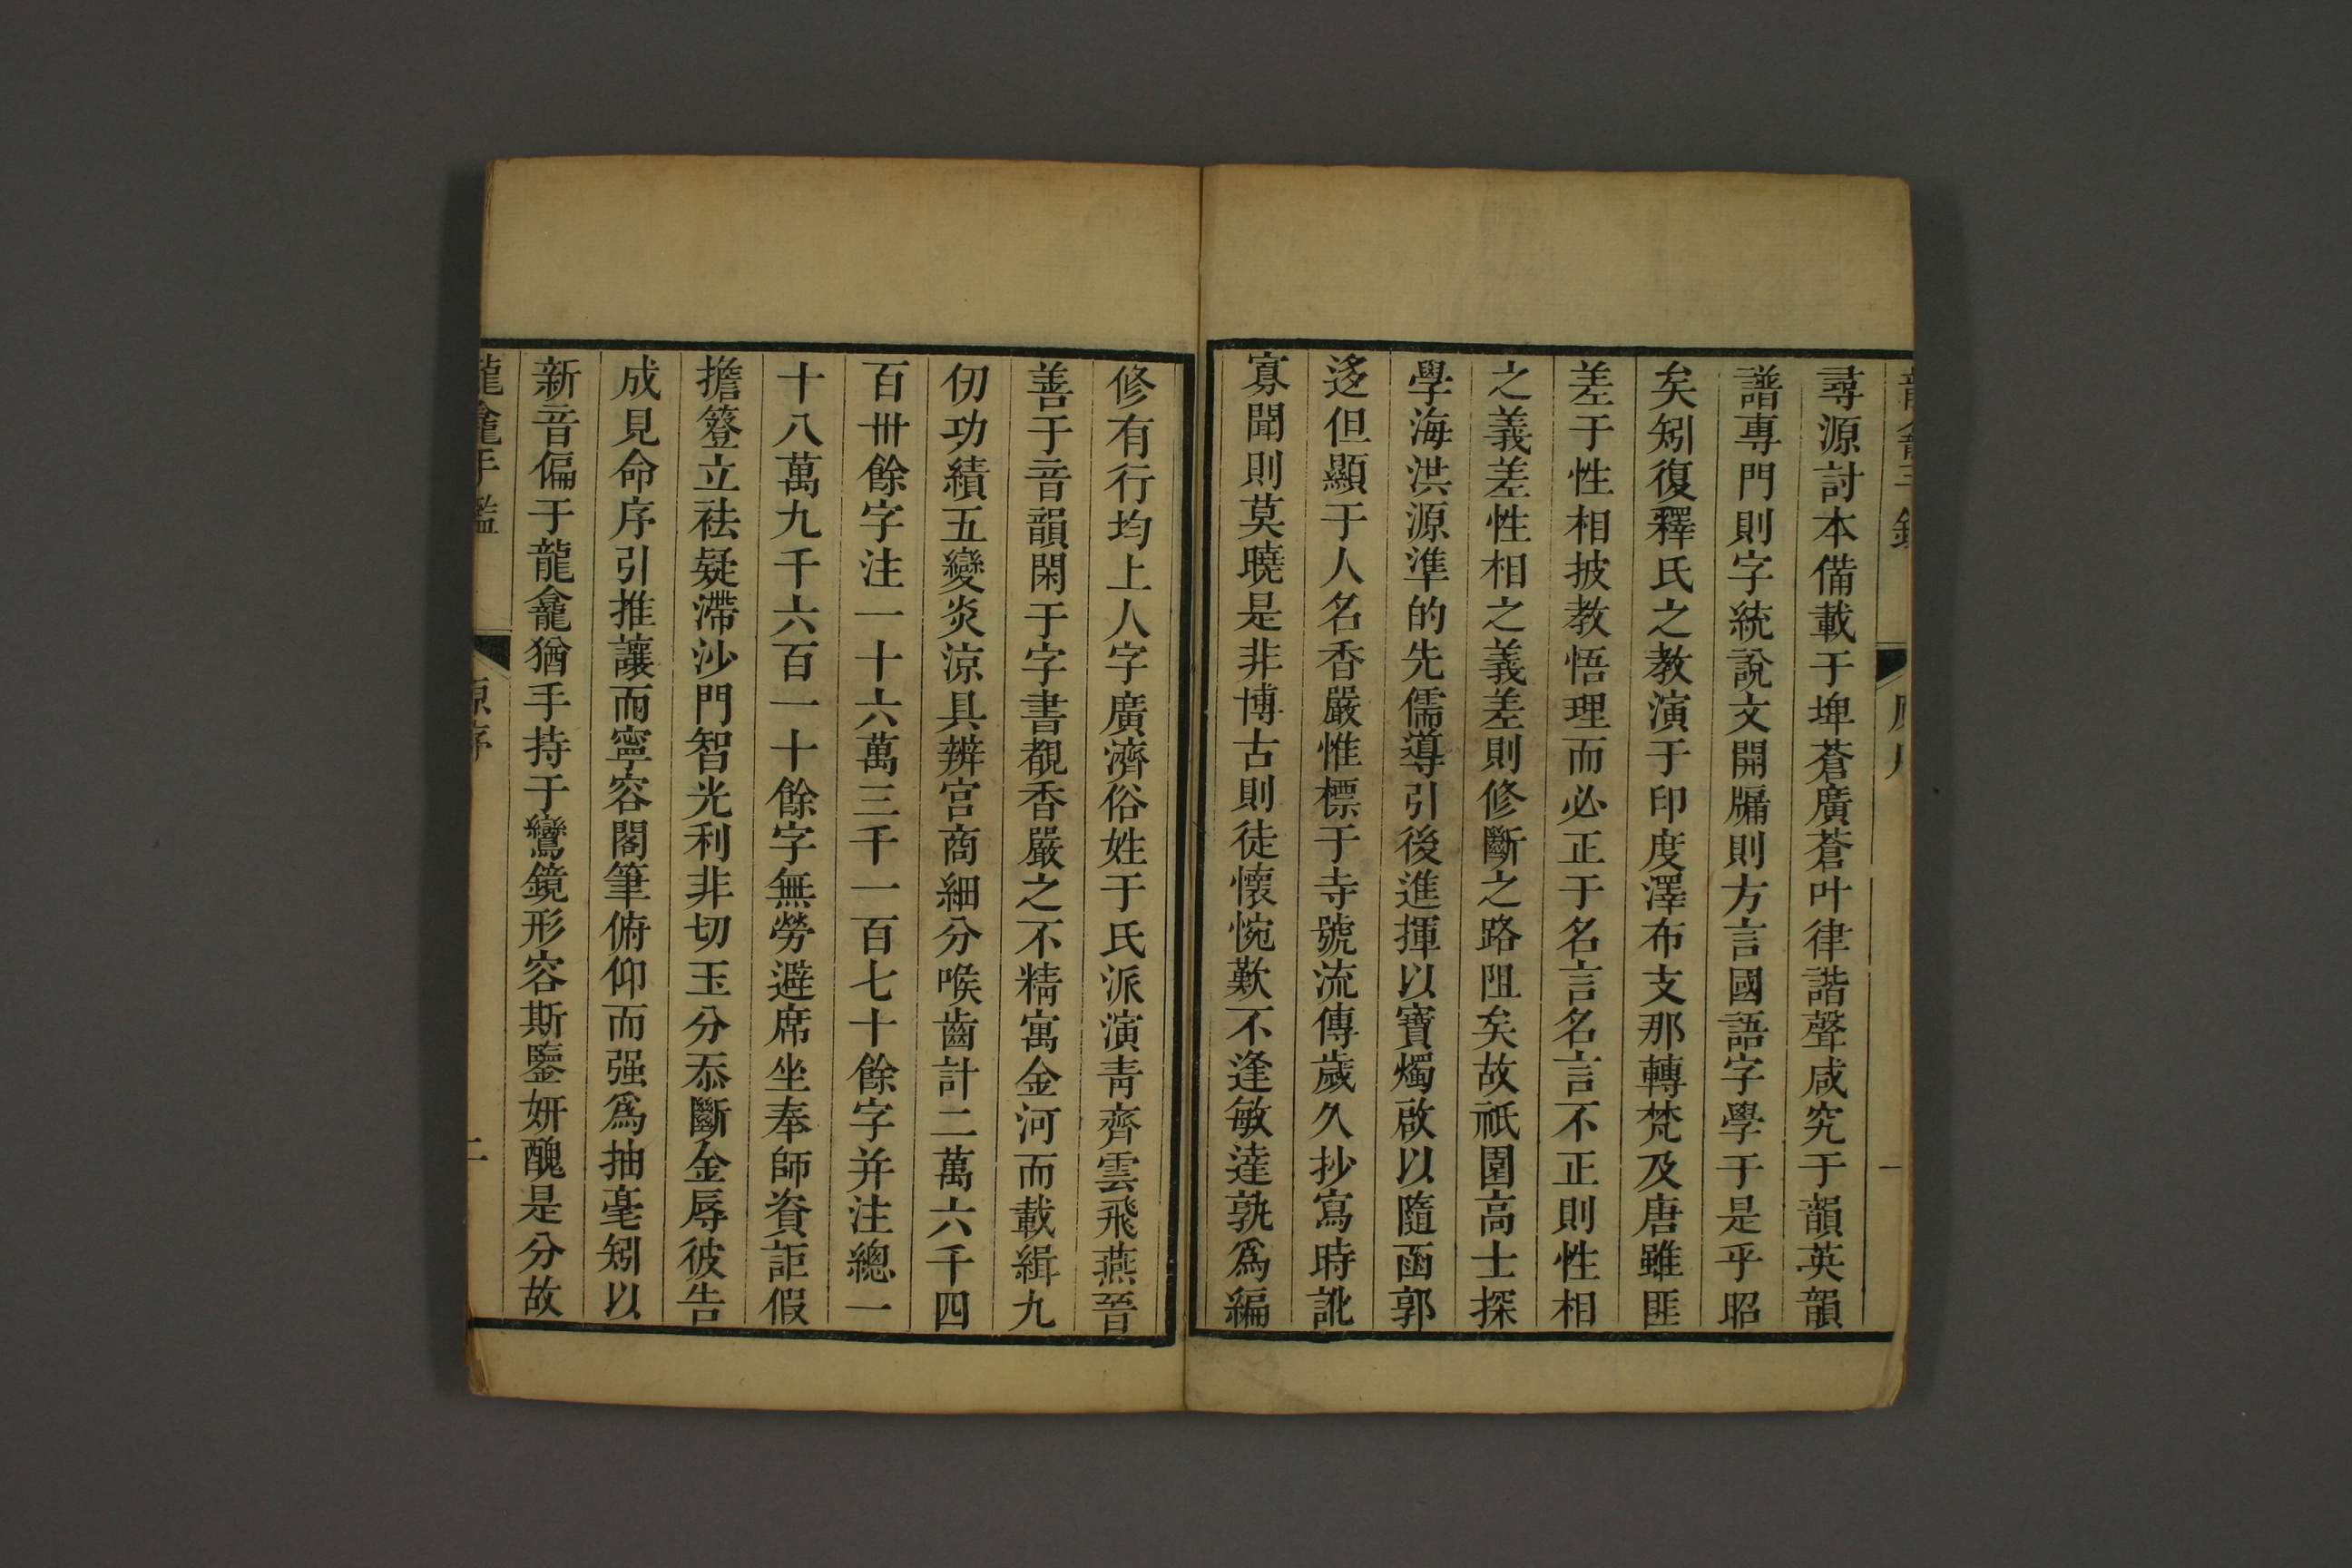 尋源討本備載于埤蒼廣蒼叶律諧聲咸究于韻英韻
譜專門則字統說文開牖則方言國語字學于是乎昭
矣矧復釋氏之教演于印度澤布支那轉梵及唐雖匪
差于性相披教悟理而必正于名言名言不正則性相
之義差性相之義差則修斷之路阻矣故祇園高士探
學海洪源準的先儒導引後進揮以寶燭啟以隨函郭
迻但顯于人名香嚴惟標于寺號流傳歲久抄寫時訛
寡聞則莫曉是非博古則徒懷惋歎不逢敏達孰為編
修有行均上人字廣濟俗姓于氏派演青齊雲飛燕晉
善于音韻閑于字書覩香嚴之不精寓金河而載緝九
仞功績五變炎涼具辨宮商細分喉齒計二萬六千四
百卅餘字注一十六萬三千一百七十餘字并注總一
十八萬九千六百一十餘字無勞避席坐奉師資詎假
擔簦立祛疑滯沙門智光利非切玉分忝斷金辱彼告
成見命序引推讓而寧容閣筆俯仰而强為抽毫矧以
新音偏于龍龕猶手持于鸞鏡形容斯鑒妍醜是分故
龍龕手鑑 原序 二